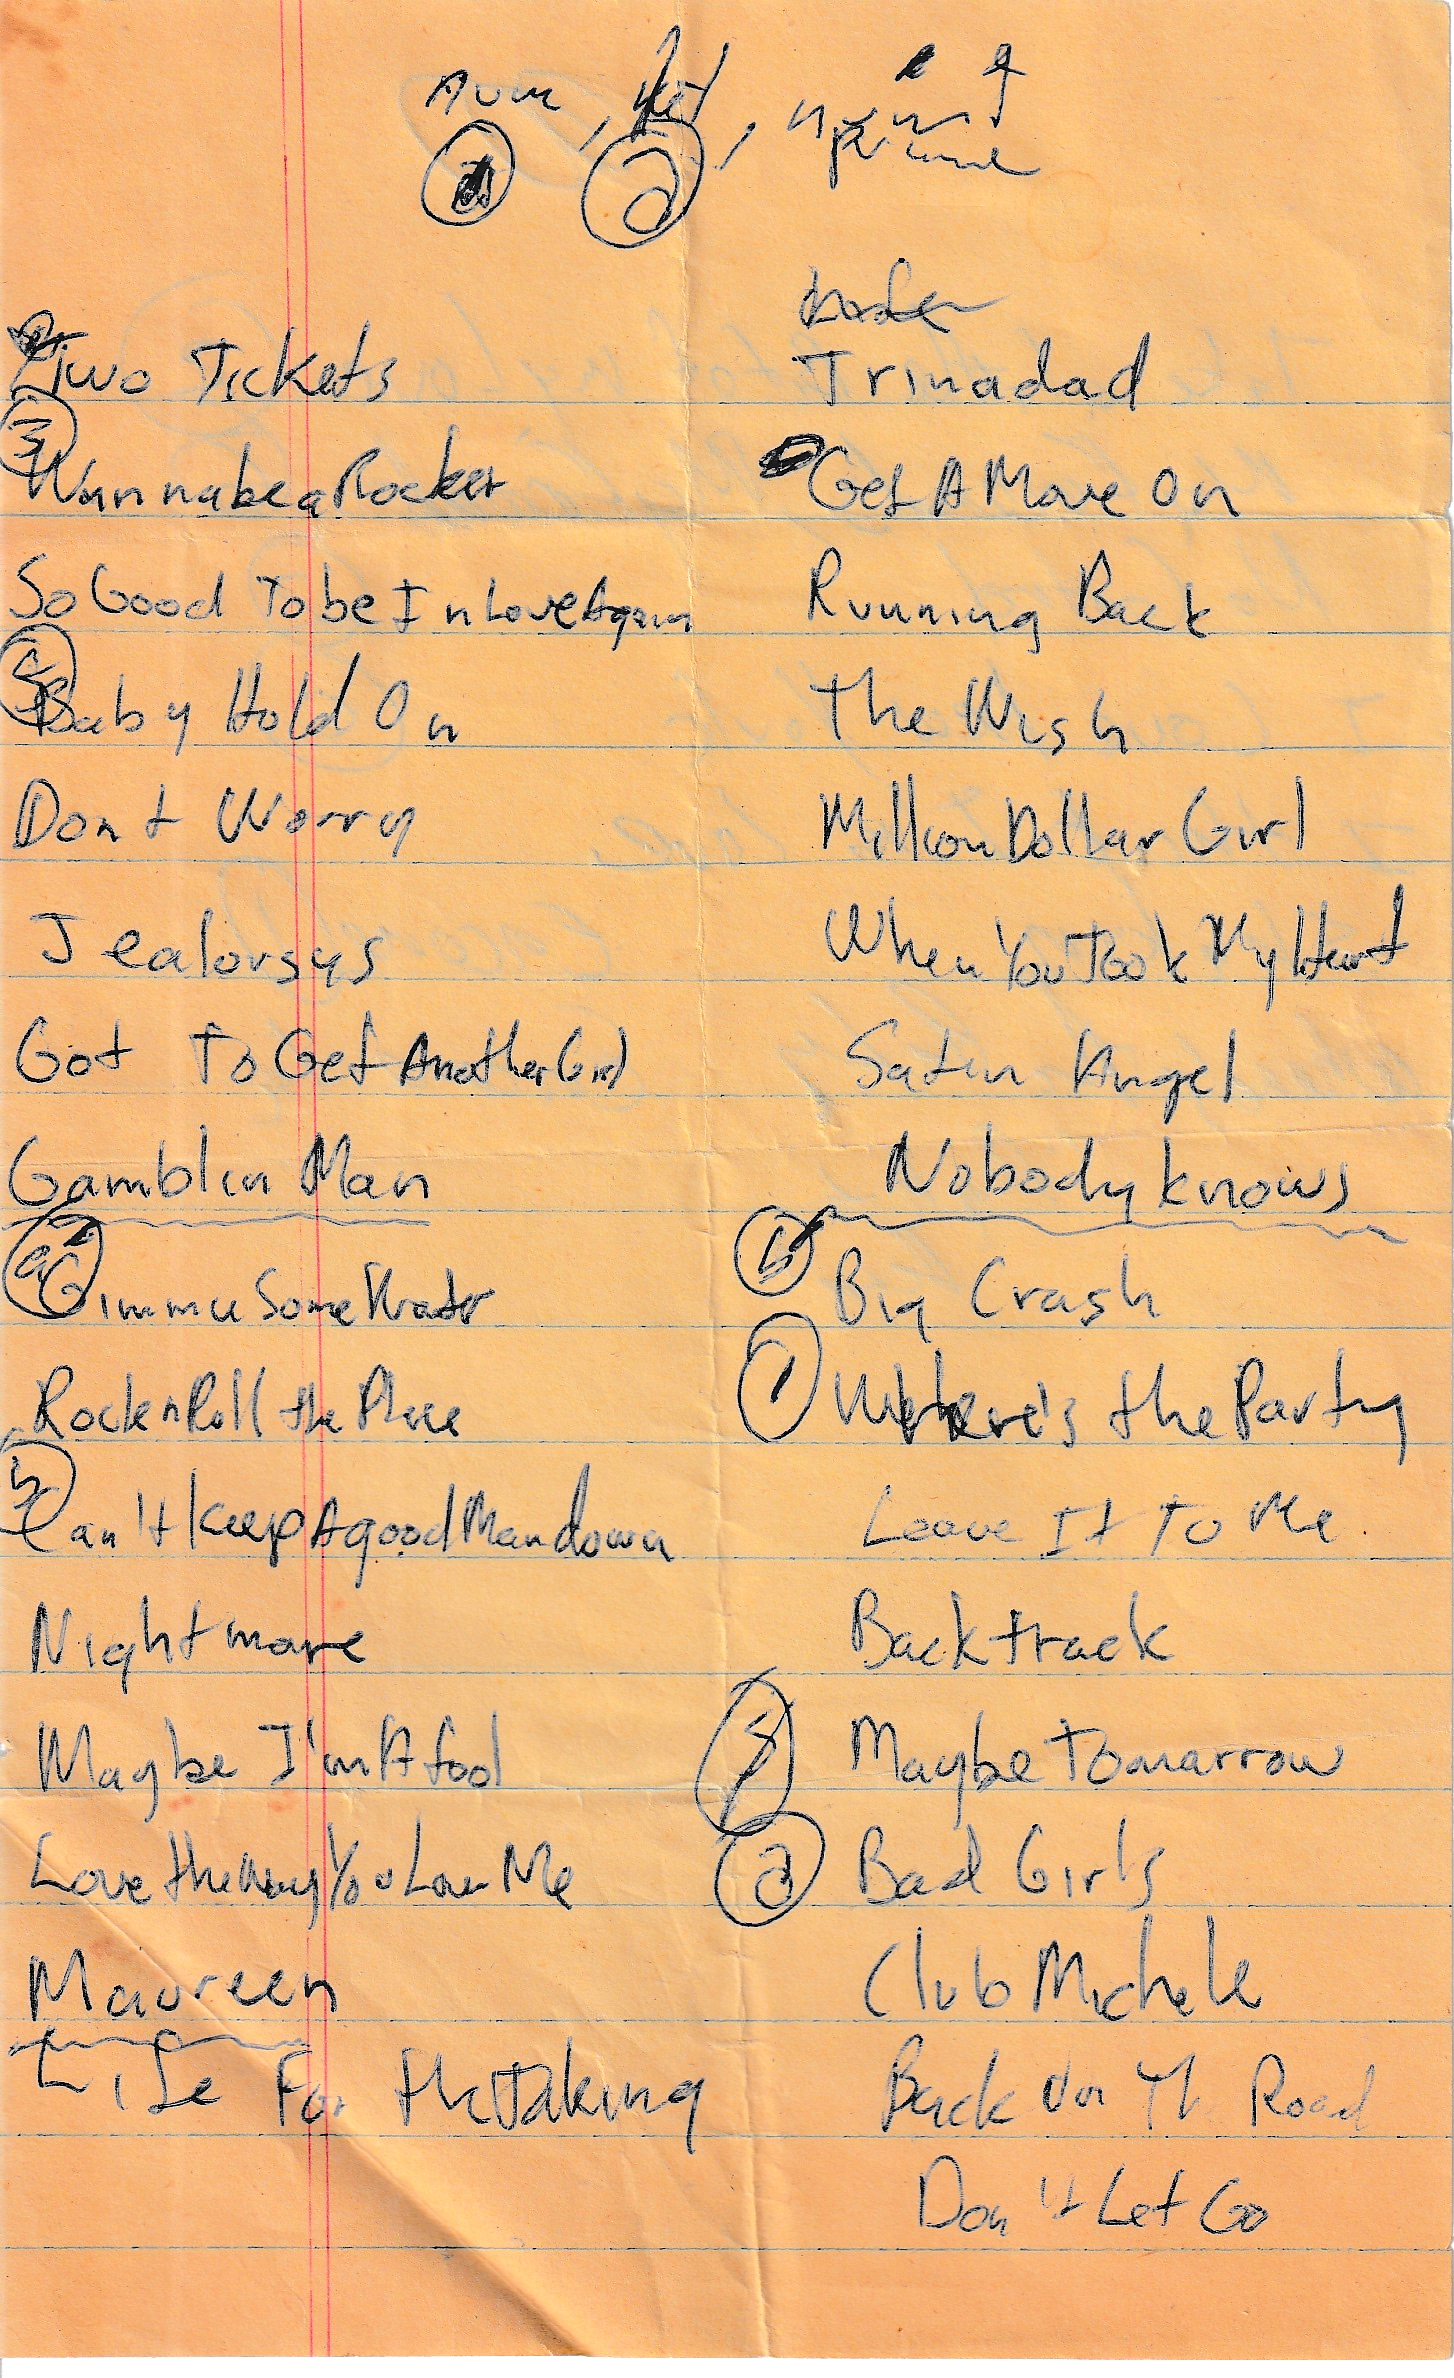 Two Tickets
3
Wannabe a Rocker
So Good To be In Love Again
Baby Hold On
Dont Worry
Jealorsys
Got To Get Another Girl
Gamblin Man
Gimmu Some
Rock n Roll the Place
Can't Keep A good Man down
Nightmare
Maybe I'm A fool
Love the Way You Love Me
Maureen
Life For the Taking
Trinadad
Get A Move On
Running Back
The Wish
Million Dollar Girl
When You Took My Heart
Satin Angel
Nobody knows
Big Crash
1 Where's the Party
Leave It To Me
Backtrack
Maybe Tomarrow
Bad Girls
Club Michele
Back On Th Road
Don't Let Go